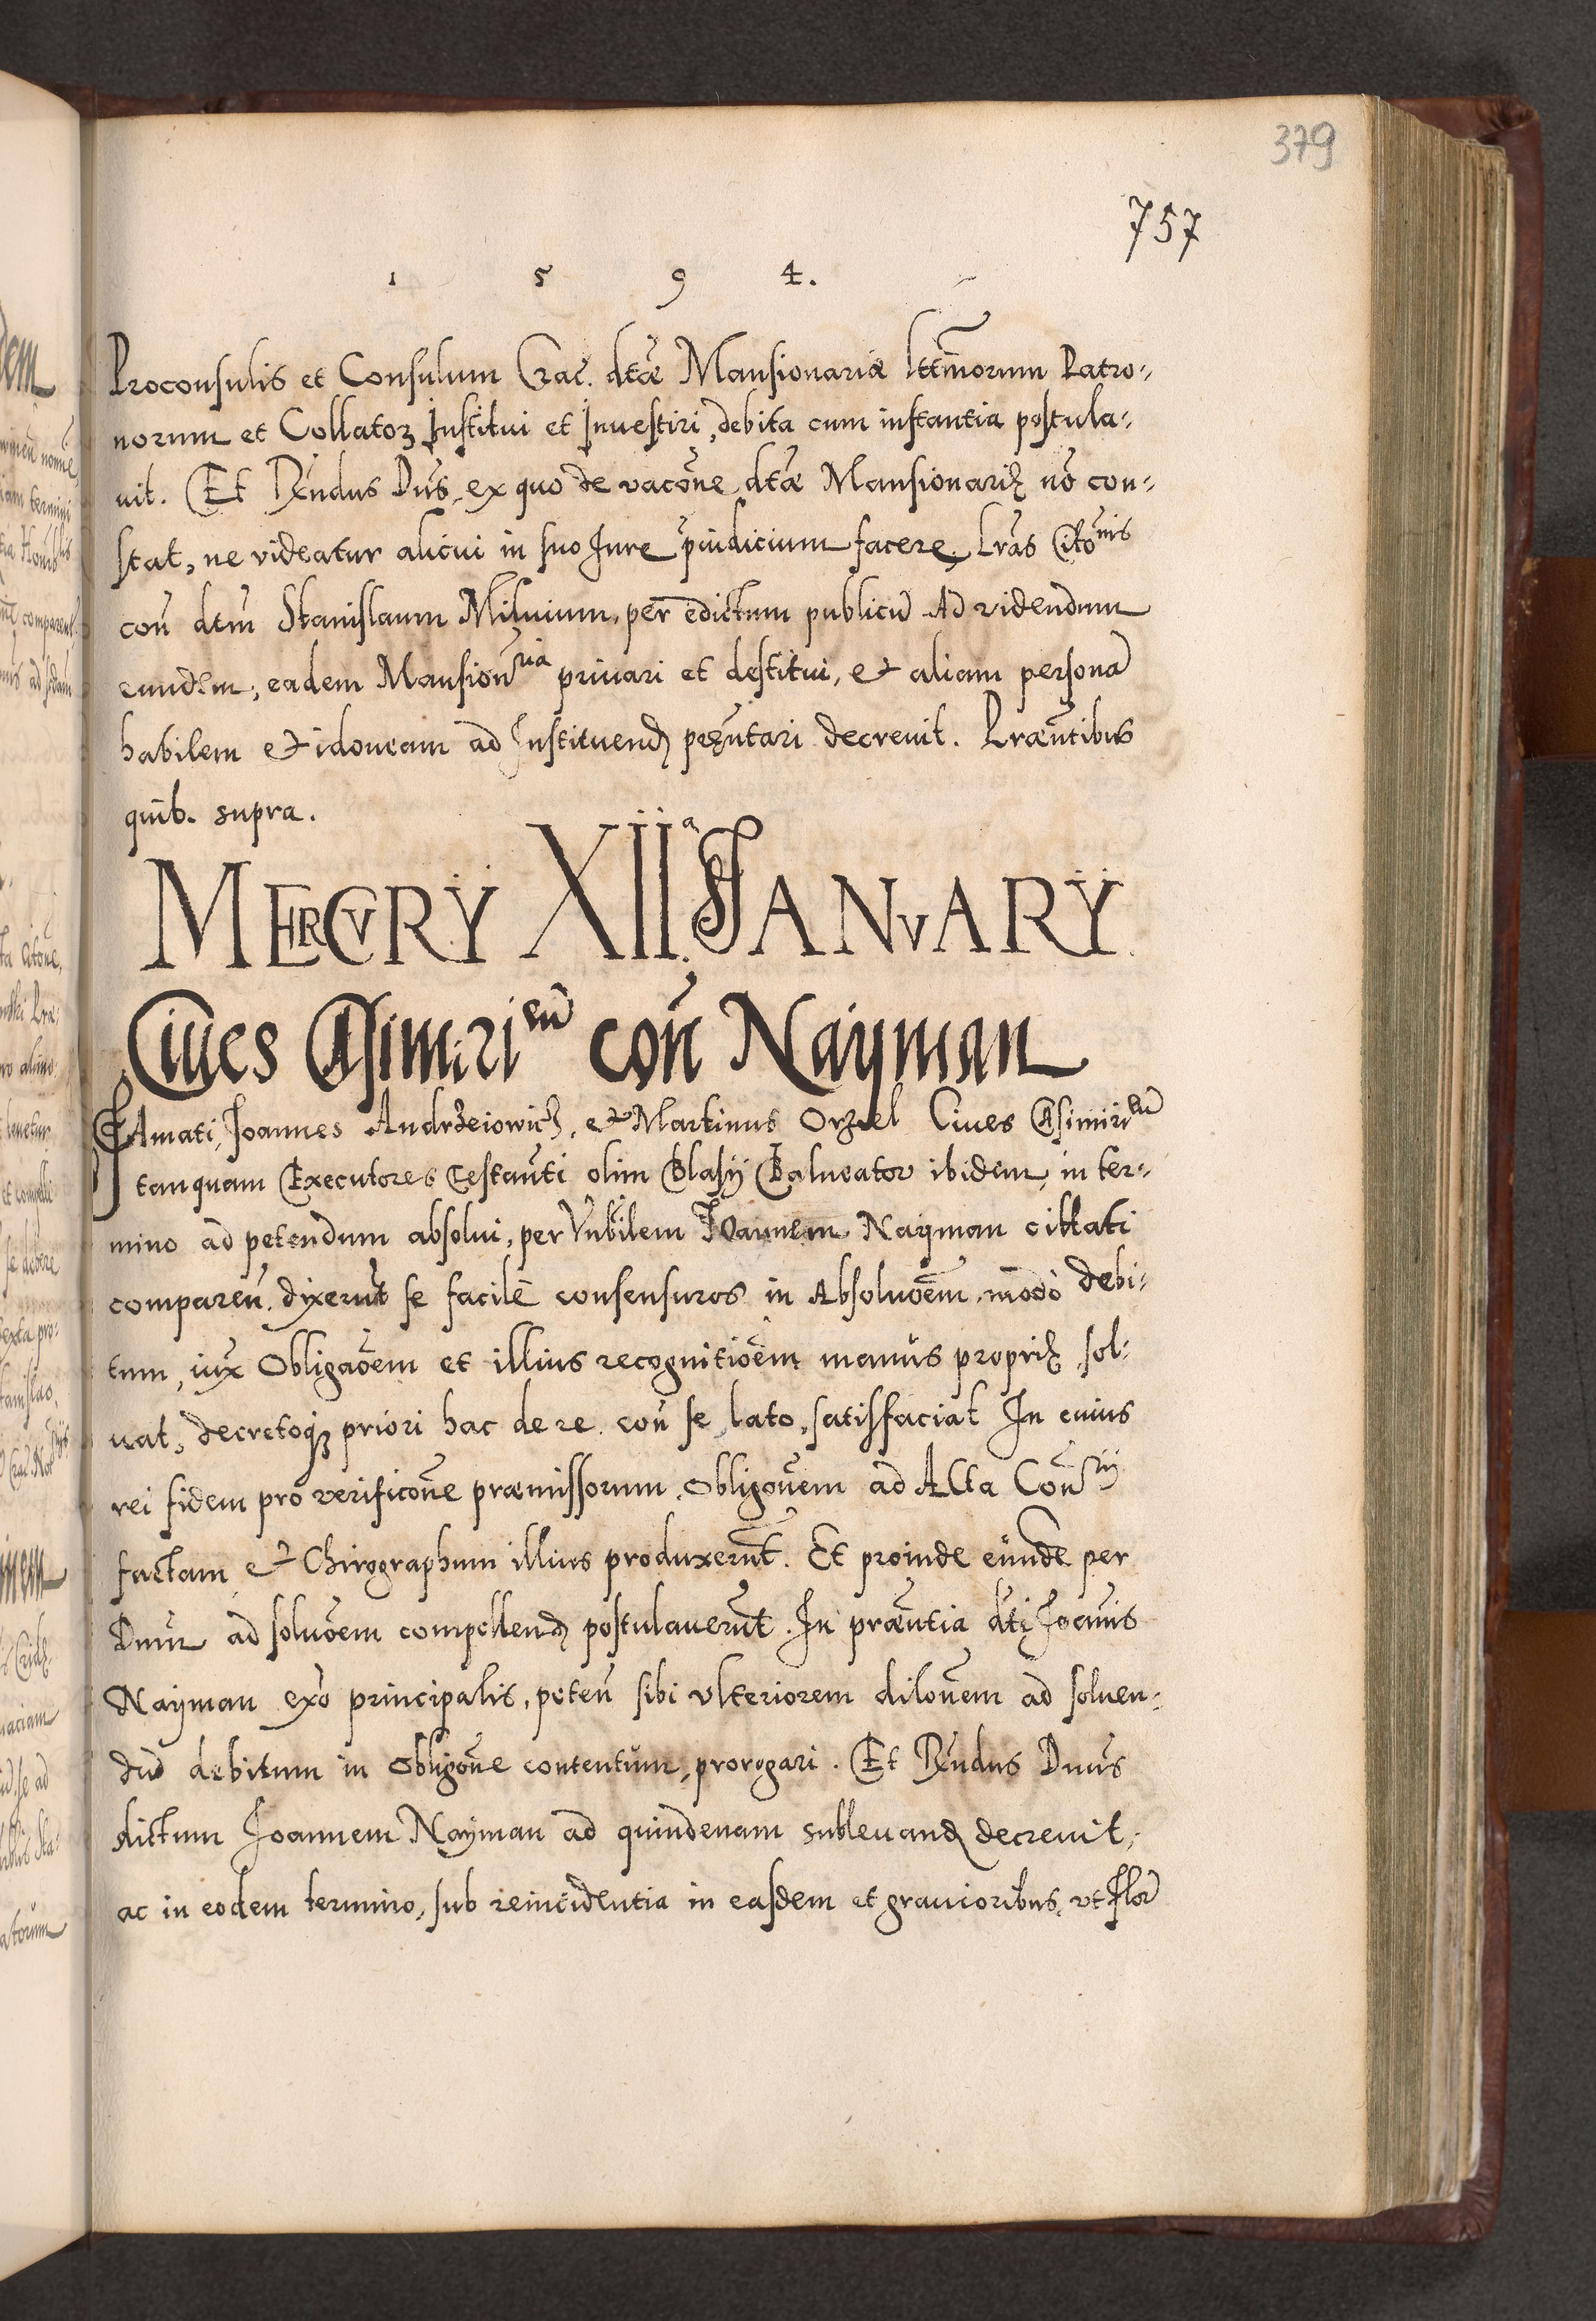 379
757
1 5 9 4.
Proconsulis et Consulum Crac. dtæ Mansionariæ lttimorum Patro-
norum et Collatoꝝ Institui et Inuestiri, debita cum instantia postula-
uit. Et Rndus Dns, ex quo de vacõne dtæ Mansionarię nõ con-
stat, ne videatur alicui in suo Jure piudicium facere. Lras Citõnis
con dtm Stanislaum Miluium, per edictum publicũ Ad videndum
eundem, eadem Mansionria priuari et destitui, et aliam personã
habilem et idoneam ad Instituend pręntari decreuit. Præntibus
quib. supra.
MERCVRY XIIa JANVARY.
Ciues Casimirien con Nayman
FAmati, Joannes Andrzeiowicz, et Martinus Orzel Ciues Casimirien
tanquam Executores testanti olim Blasÿ Balneator ibidem, in ter-
mino ad petendum absolui, per Vnbilem Joannem Nayman cittati
comparen. dixerunt se facile consensuros in Absoluõem, modò debi-
tum, iux Obligaõem et illius recognitiõem manus proprię sol-
uat, decretoqꝫ priori hac de re con se lato, satisfaciat In cuius
rei fidem pro verificõne præmissorum, obligõnem ad Acta Conrÿ
factam et Chirographum illius produxerunt. Et proinde eundẽ per
Dnum ad soluõem compellend postulauerunt. In præntia dti Joannis
Nayman exõ principalis, peten sibi vlteriorem dilõnem ad soluen-
dũ debitum in obligõne contentum, prorogari. Et Rndus Dnus
dictum Joannem Nayman ad quindenam subleuand decreuit,
ac in eodem termino, sub reincidentia in easdem et grauioribus, vt flor